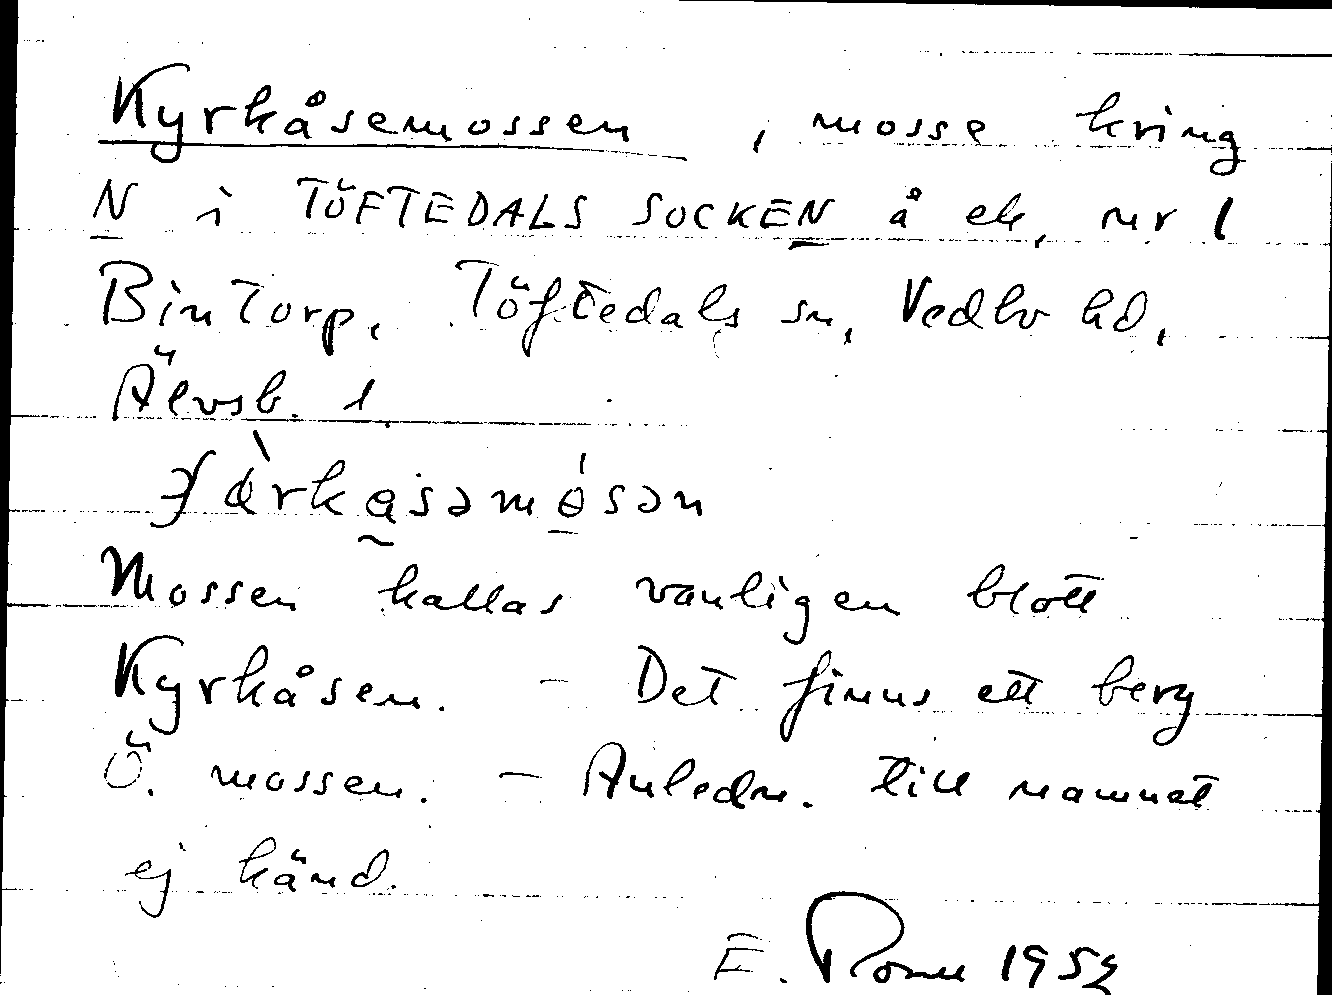 Kyrkåsemossen, mosse kring
N i TÖFTEDALS SOCKEN å ek, nr 1
Bintorp, Töftedals sn, Vedbo hd,
Älvsb. l.
Mossen kallas vanligen blott
Kyrkåsen. - Det finns ett berg
Ö. mossen. - Anledn. till namnet
ej känd.
E. 1952